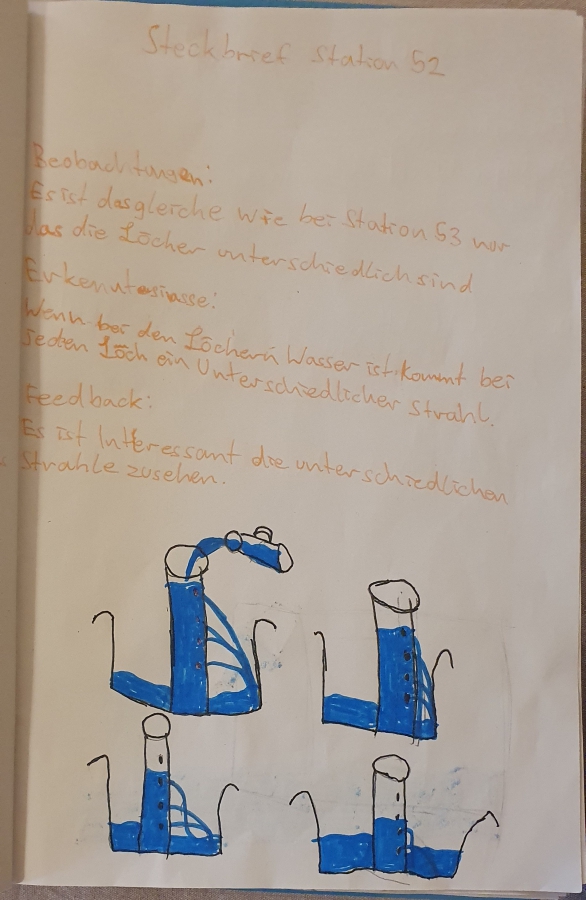 Steckbrief Station 52
Beobachtungen:
Es ist dasgleiche wie bei Station 53 nur
das die Löcher unterschiedlich sind
Erkenntnisse:
Wenn bei den Löchern Wasser ist kommt bei
jeden Loch ein Unterschiedlicher strahl.
Feedback:
Es ist Interessant die unterschiedlichen
Strahle zusehen.